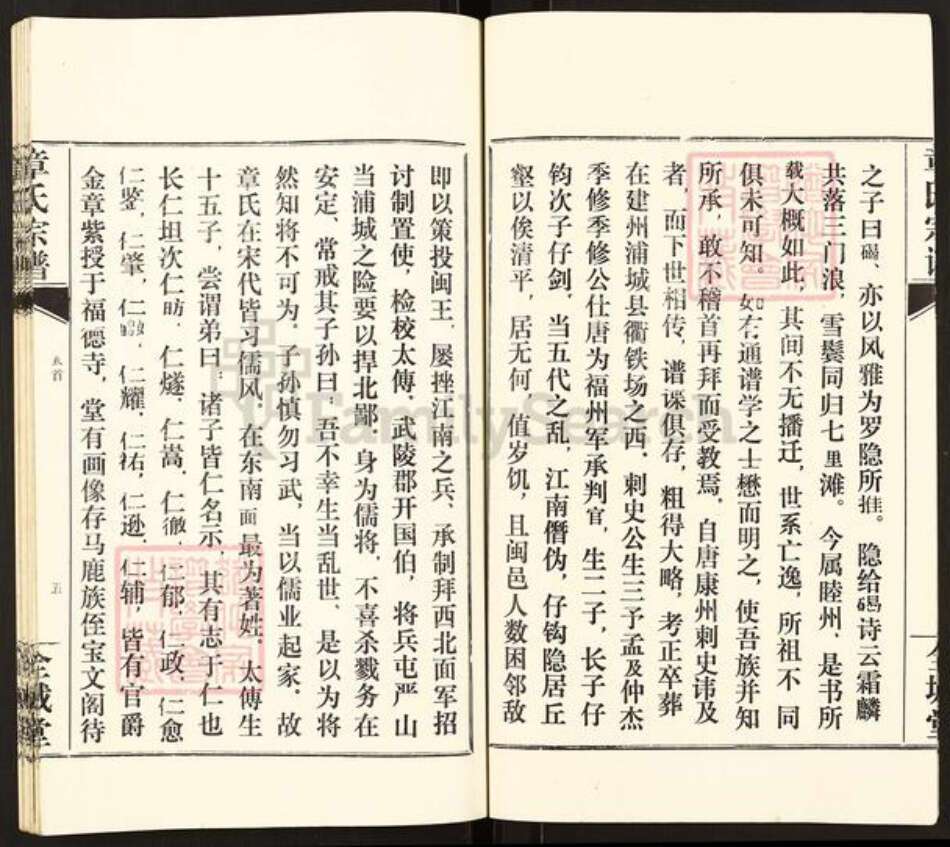 之子曰碣、亦以风雅为罗隐所推。隐给碣诗云霜麟
共落三门浪，雪鬓同归七里滩。今属睦州、是书所
载大概如此，其间不无播迁，世系亡逸，所祖不同
俱未可知。如有通谱学之士懋而明之，使吾族并知
所承，敢不稽首再拜而受教焉．自唐康州刺史讳及
者，而下世相传，谱谍俱存，粗得大略，考正卒葬
在建州浦城县衢铁场之西．刺史公生三予孟及仲杰
季修季修公仕唐为福州军承判官，生二子，长子仔
钧次子仔剑．当五代之乱，江南僭伪，仔钩隐居丘
壑以俟清平，居无何，值岁饥，且闽邑人数困邻敌
即以策投闽王．屡挫江南之兵、承制拜西北面军招
讨制置使，检校太傅．武陵郡开国伯，将兵屯严山
当浦城之险要以捍北鄙．身为儒将，不喜杀戮务在
安定．常戒其子孙曰：吾不幸生当乱世．是以为将
然知将不可为．子孙慎勿习武，当以儒业起家．故
章氏在宋代皆习儒风．在东南面最为著姓．太傅生
十五子，尝谓弟曰：诸子皆仁名示．其有志于仁也
长仁坦次仁昉．仁燧．仁嵩．仁徹．仁郁．仁政．仁愈
仁鉴．仁肇．仁 ．仁耀．仁祐．仁逊．仁辅，皆有官爵
金章紫授于福德寺，堂有画像存马鹿族侄宝文阁待
章氏宗谱
卷首
五
全城堂
章氏宗谱
全城堂
FamilySearch